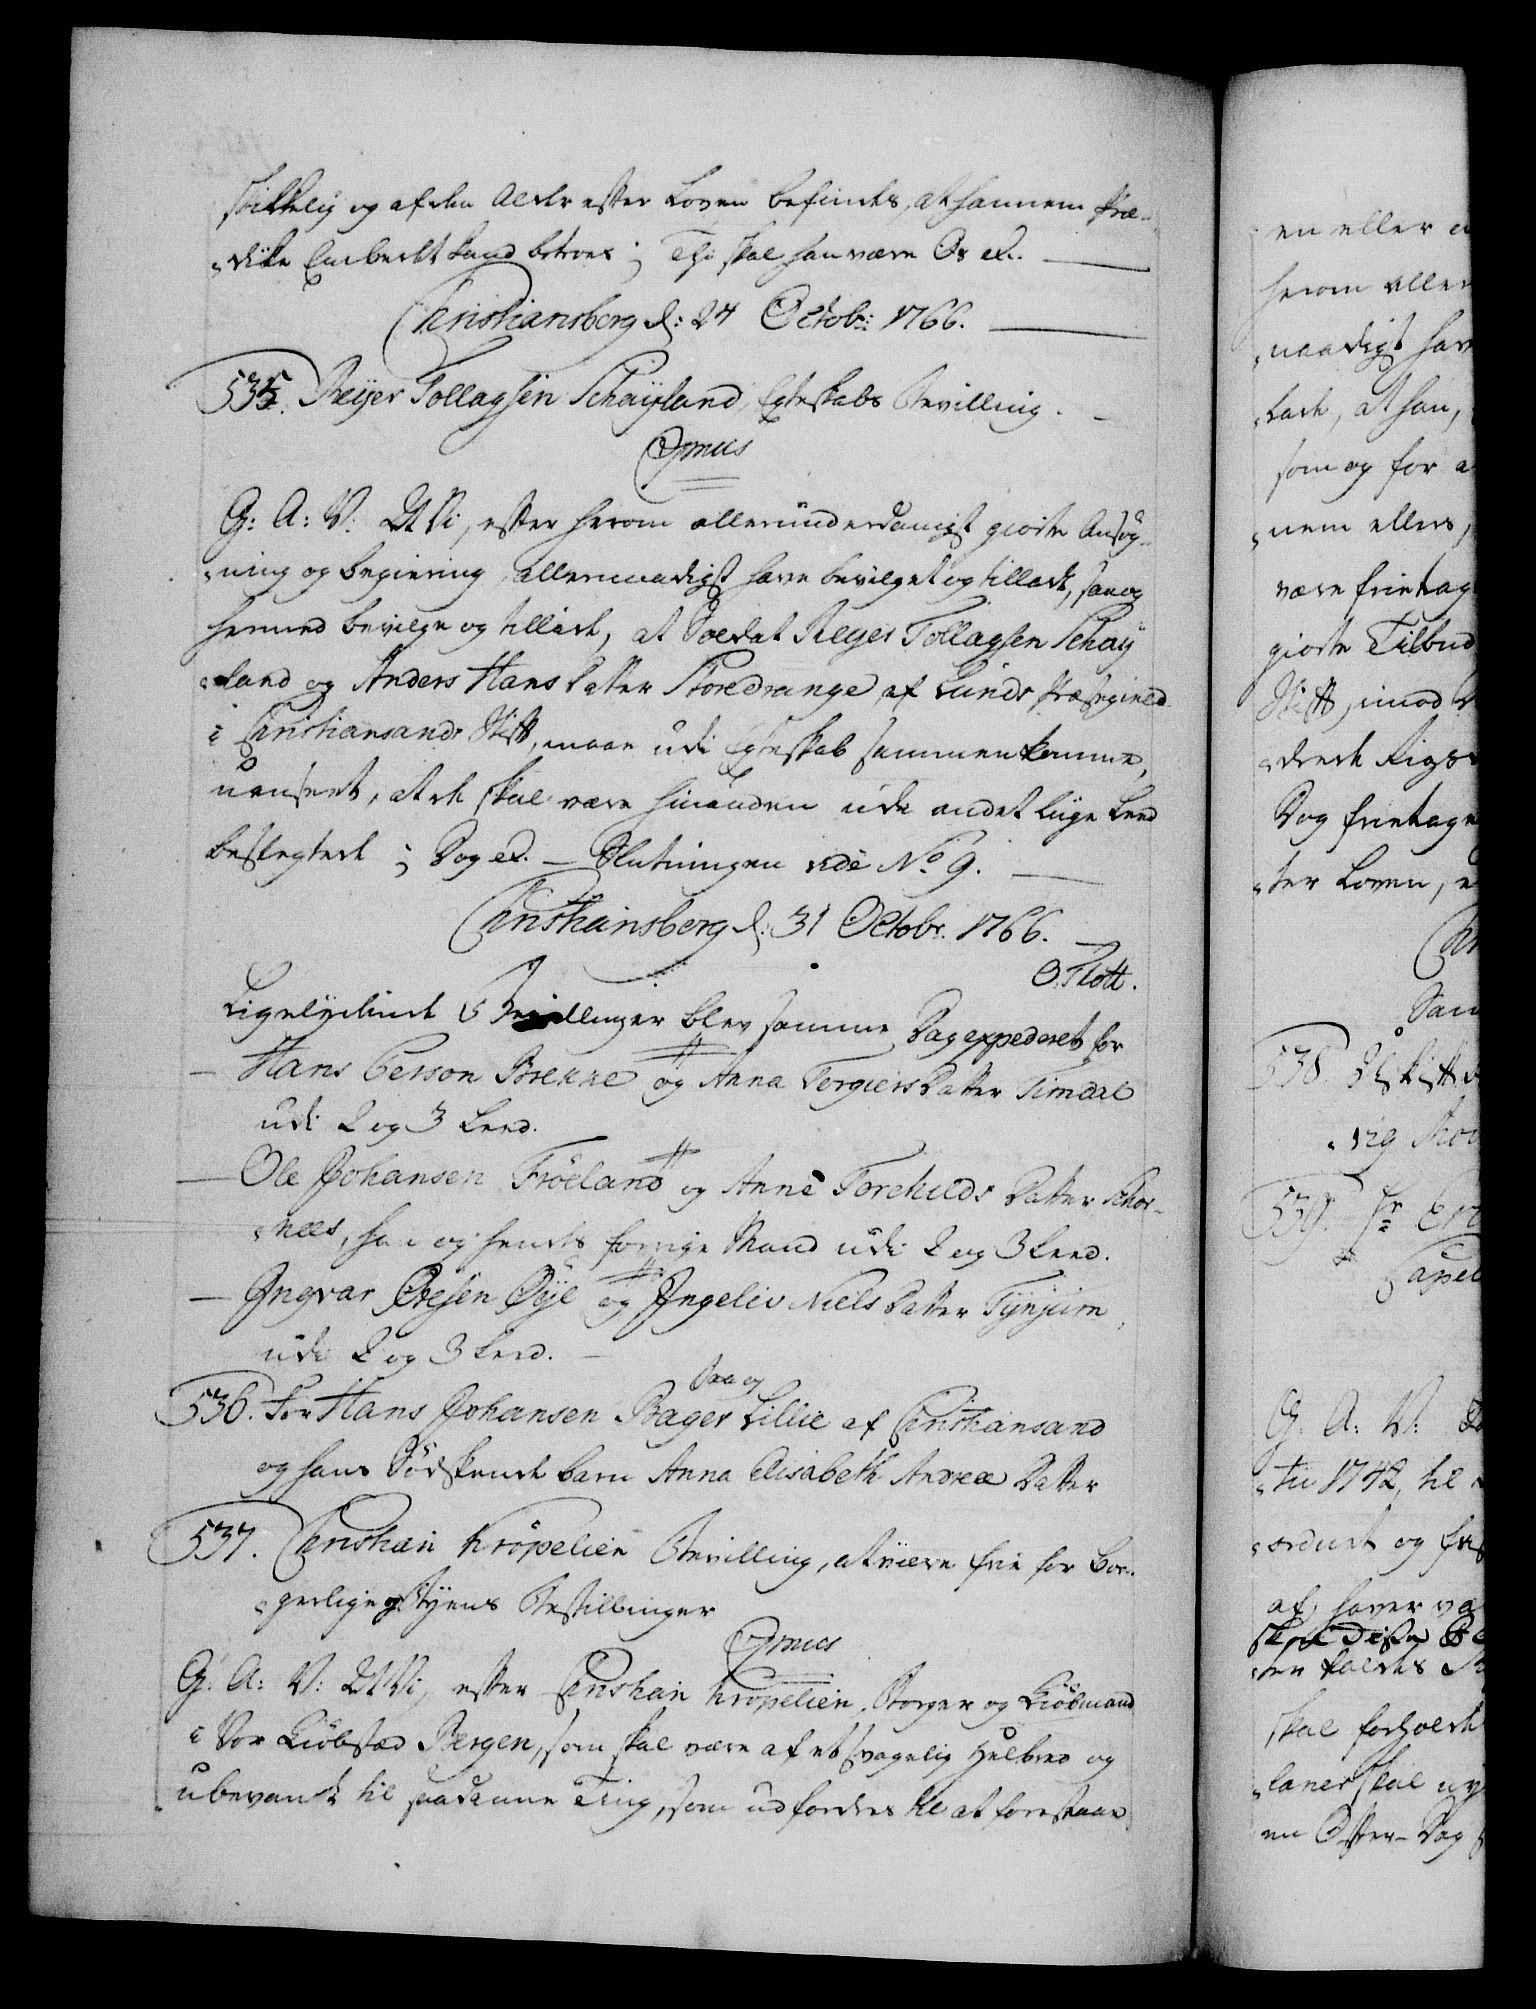 skikkelig og af den Alder efter Loven befindes, at hannem Præ-
„dike Embedet kand betroes; Thi skal han være Os etc.
Christiansberg d: 24 Octobr: 1766.
535. Reijer Tollagsen Schaÿland, Egteskabs Bevilling.
Cÿmus
G: A: V: At Vi, efter herom allerunderdanigst giorte Ansøg-
„ning og begiering, allernaadigst have bevilget og tilladt, saa og
hermed bevilge og tillade, at Soldat Reijer Tollagsen Schaÿ
„land og Anders Hans Datter Storedrange af Lunds Præstegield
i Christiansands Stift, maae udi Egteskab sammenkomme,
uanseet, at de skal være hinanden udi andet liige Leed
beslegtede; Dog etc. Slutningen vide No. 9.
Christiansberg d: 31 Octobr. 1766.
O. Thott.
Ligelydende 5 Bevillinger blev samme Dag expederet for
— Hans Person Brekke og Anna Torgiers Datter Timdal
udi 2 og 3 Leed.
— Ole Johansen Frøeland og Anne Torchilds Datter Schor-
„nees, han og hendes forrige Mand udi 2 og 3 Leed.
— Ingvar Olesen Øÿe og Ingeliv Niels Datter Tÿnjum,
udi 2 og 3 Leed. —
536. For Hans Johansen Bager saa og Lillie af Christiansand
og hans Sødskende barn Anna Elisabeth Andreæ Datter
537. Christian Krøpelien Bevilling, at være frie for Bor-
„gerlige og Byens Bestillinger
Cÿmus
G: A: V: At Vi, efter Christian Krøpelien, Borger og Kiøbmand
i Vor Kiøbstad Bergen, som skal være af et svagelig Helbred og
ubevandt til saadanne Ting, som udfordres til at forestaae
en eller
herom aller
„naadigst hav
„lade, at han,
som og for a
„nem ellers,
være frietag
giorte Tilbud
Stift, imod
Dog frietage
„ter Loven,
Sam
538.
539.
G: A: V:
„tii 1742, til
„ordnet og
af, haver
„ter kaldes
skal forholde
„laner skal
en Efter-Dag